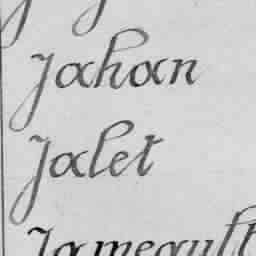 Jahan
Jalet
Jameault